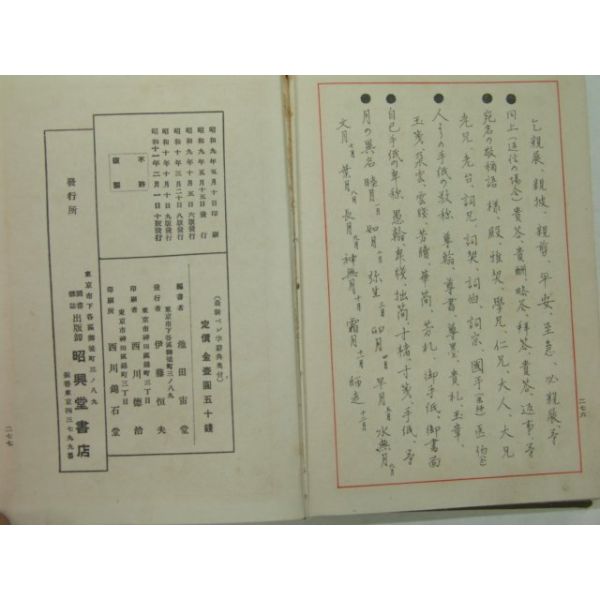 乞親展、親披、親剪、平安、至急、必親展、等
同上(返信の場合)貴答、貴酬、略答、拜答、貴答、返事等
宛名の敬稱語 樣、殿、雅契、學兄、仁兄、大人、大兄
老兄、老台、詞兄、詞契、詞伯、詞宗、國手(医師)医伯
人の手紙の敬称 尊翰、尊書、尊墨、貴札、玉章、
玉箋、朶雲、雲牋、芳牘、華简、芳札、御手紙、御書面
自己手紙の卑称 愚翰、卑牋、拙简、寸楮、寸箋、手紙、等
月の異名 睦月一月 如月二月 弥生三月 卯月四月 早月五月 水無月六月
文月七月 葉月八月 長月九月 神無月十月 霜月十一月 師走十二月
二七六
昭和九年五月十日印刷
昭和九年五月十五日發行
昭和九年十月五日六版發行
昭和十年三月二十日八版發行
昭和十年十月十日九版發行
昭和十一年二月一日十版發行
不許
複製
(最新ペン字辭典奥付)
定價 金壹圓五十錢
編書者 池田宙堂
東京市下谷區御徒町三ノ八九
發行者 伊藤恒夫
東京市神田區錦町三丁目
印刷者 西川德治
東京市神田區錦町三丁目
印刷所 西川錦石堂
發行所
東京市下谷區御徒町三ノ八九
圖書雜誌 出版部 昭興堂書店
振替東京四三七九九番
二七七